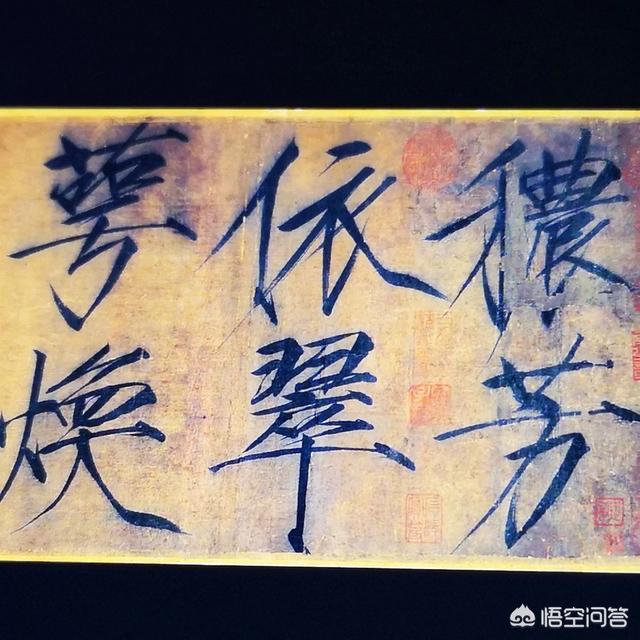 穠芳
依翠
萼煥
悟空问答